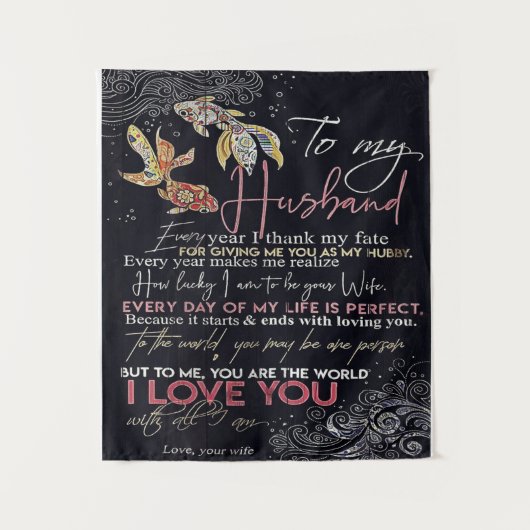 To my
Husband
Every year I thank my fate
FOR GIVING ME YOU AS MY HUBBY.
Every year makes me realize
How lucky I am to be your Wife.
EVERY DAY OF MY LIFE IS PERFECT.
Because it starts & ends with loving you.
To the world, you may be one person
BUT TO ME, YOU ARE THE WORLD
I LOVE YOU
with all I am
Love, your wife